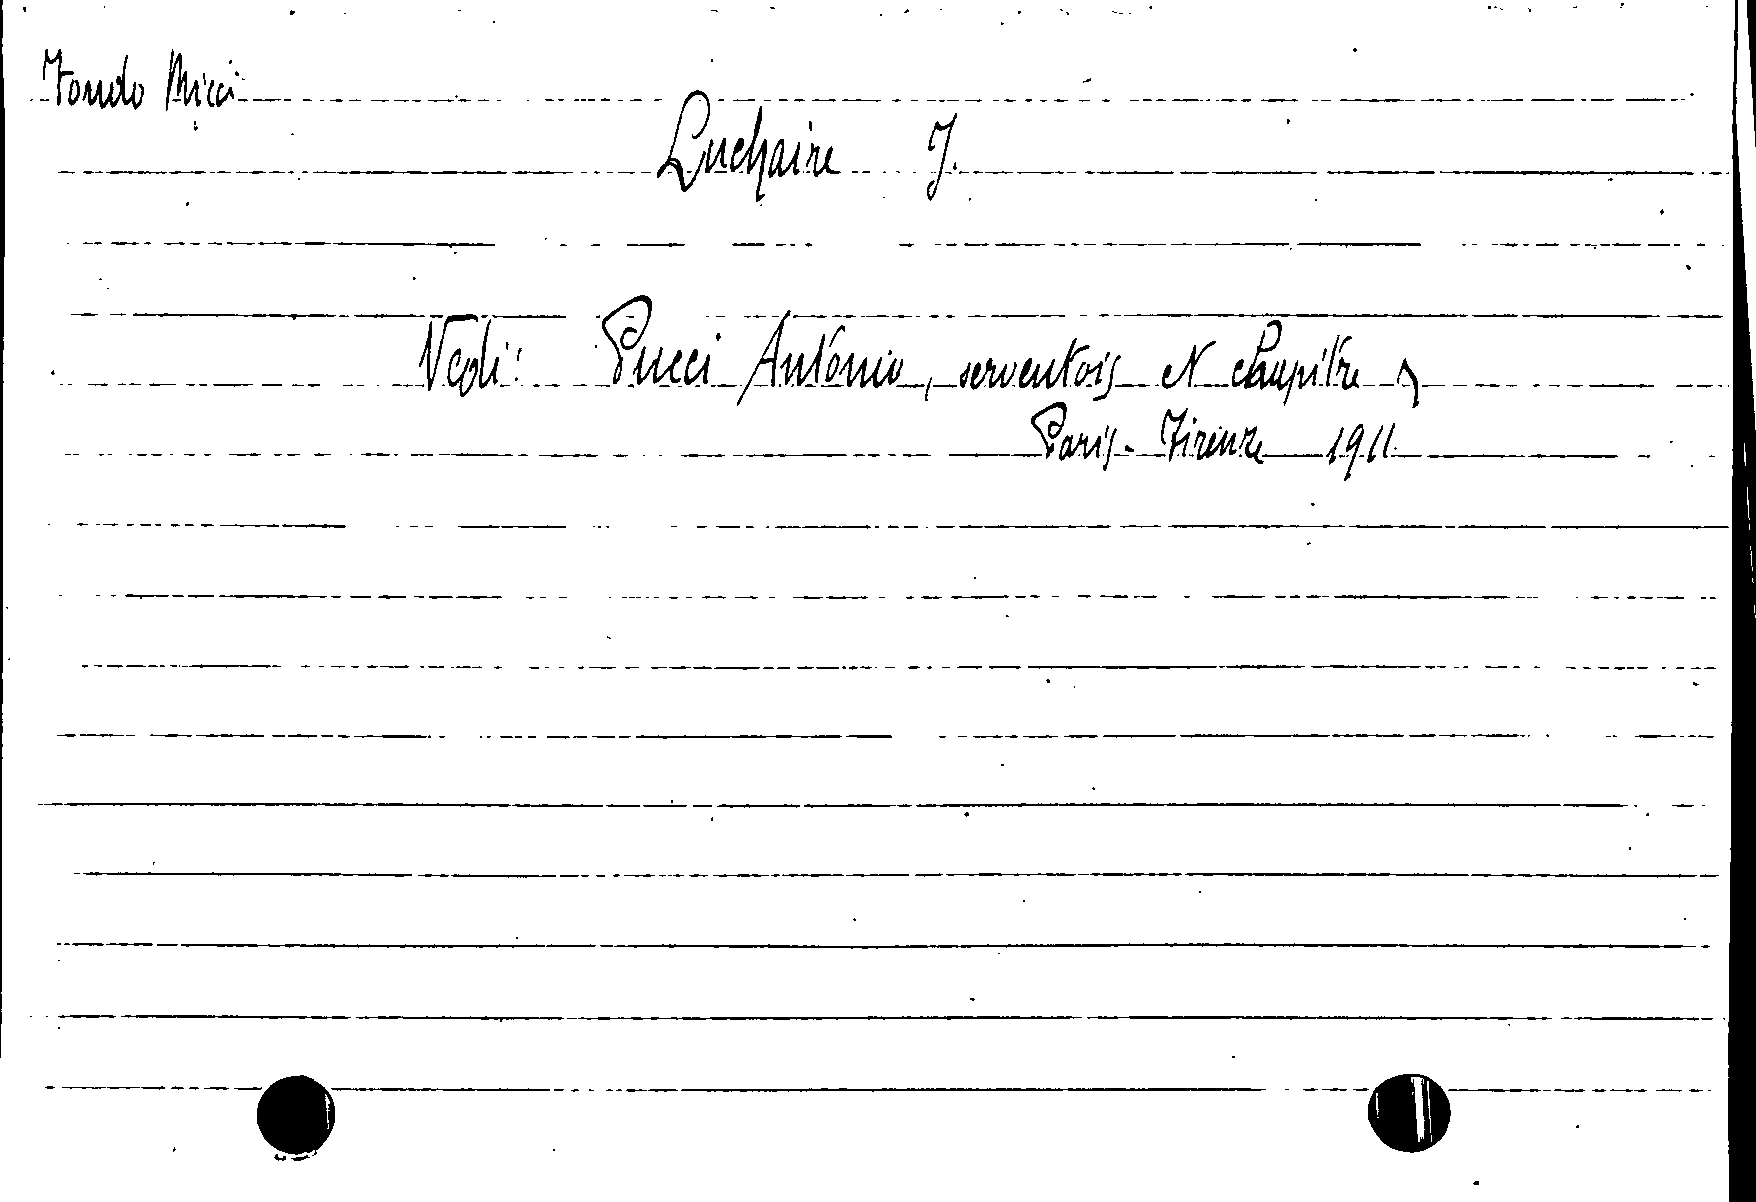 Fondo Micci
Luchaire J.
Vedi: Pucci Antonio, serventois et chapitre
Paris - Firenze 1911